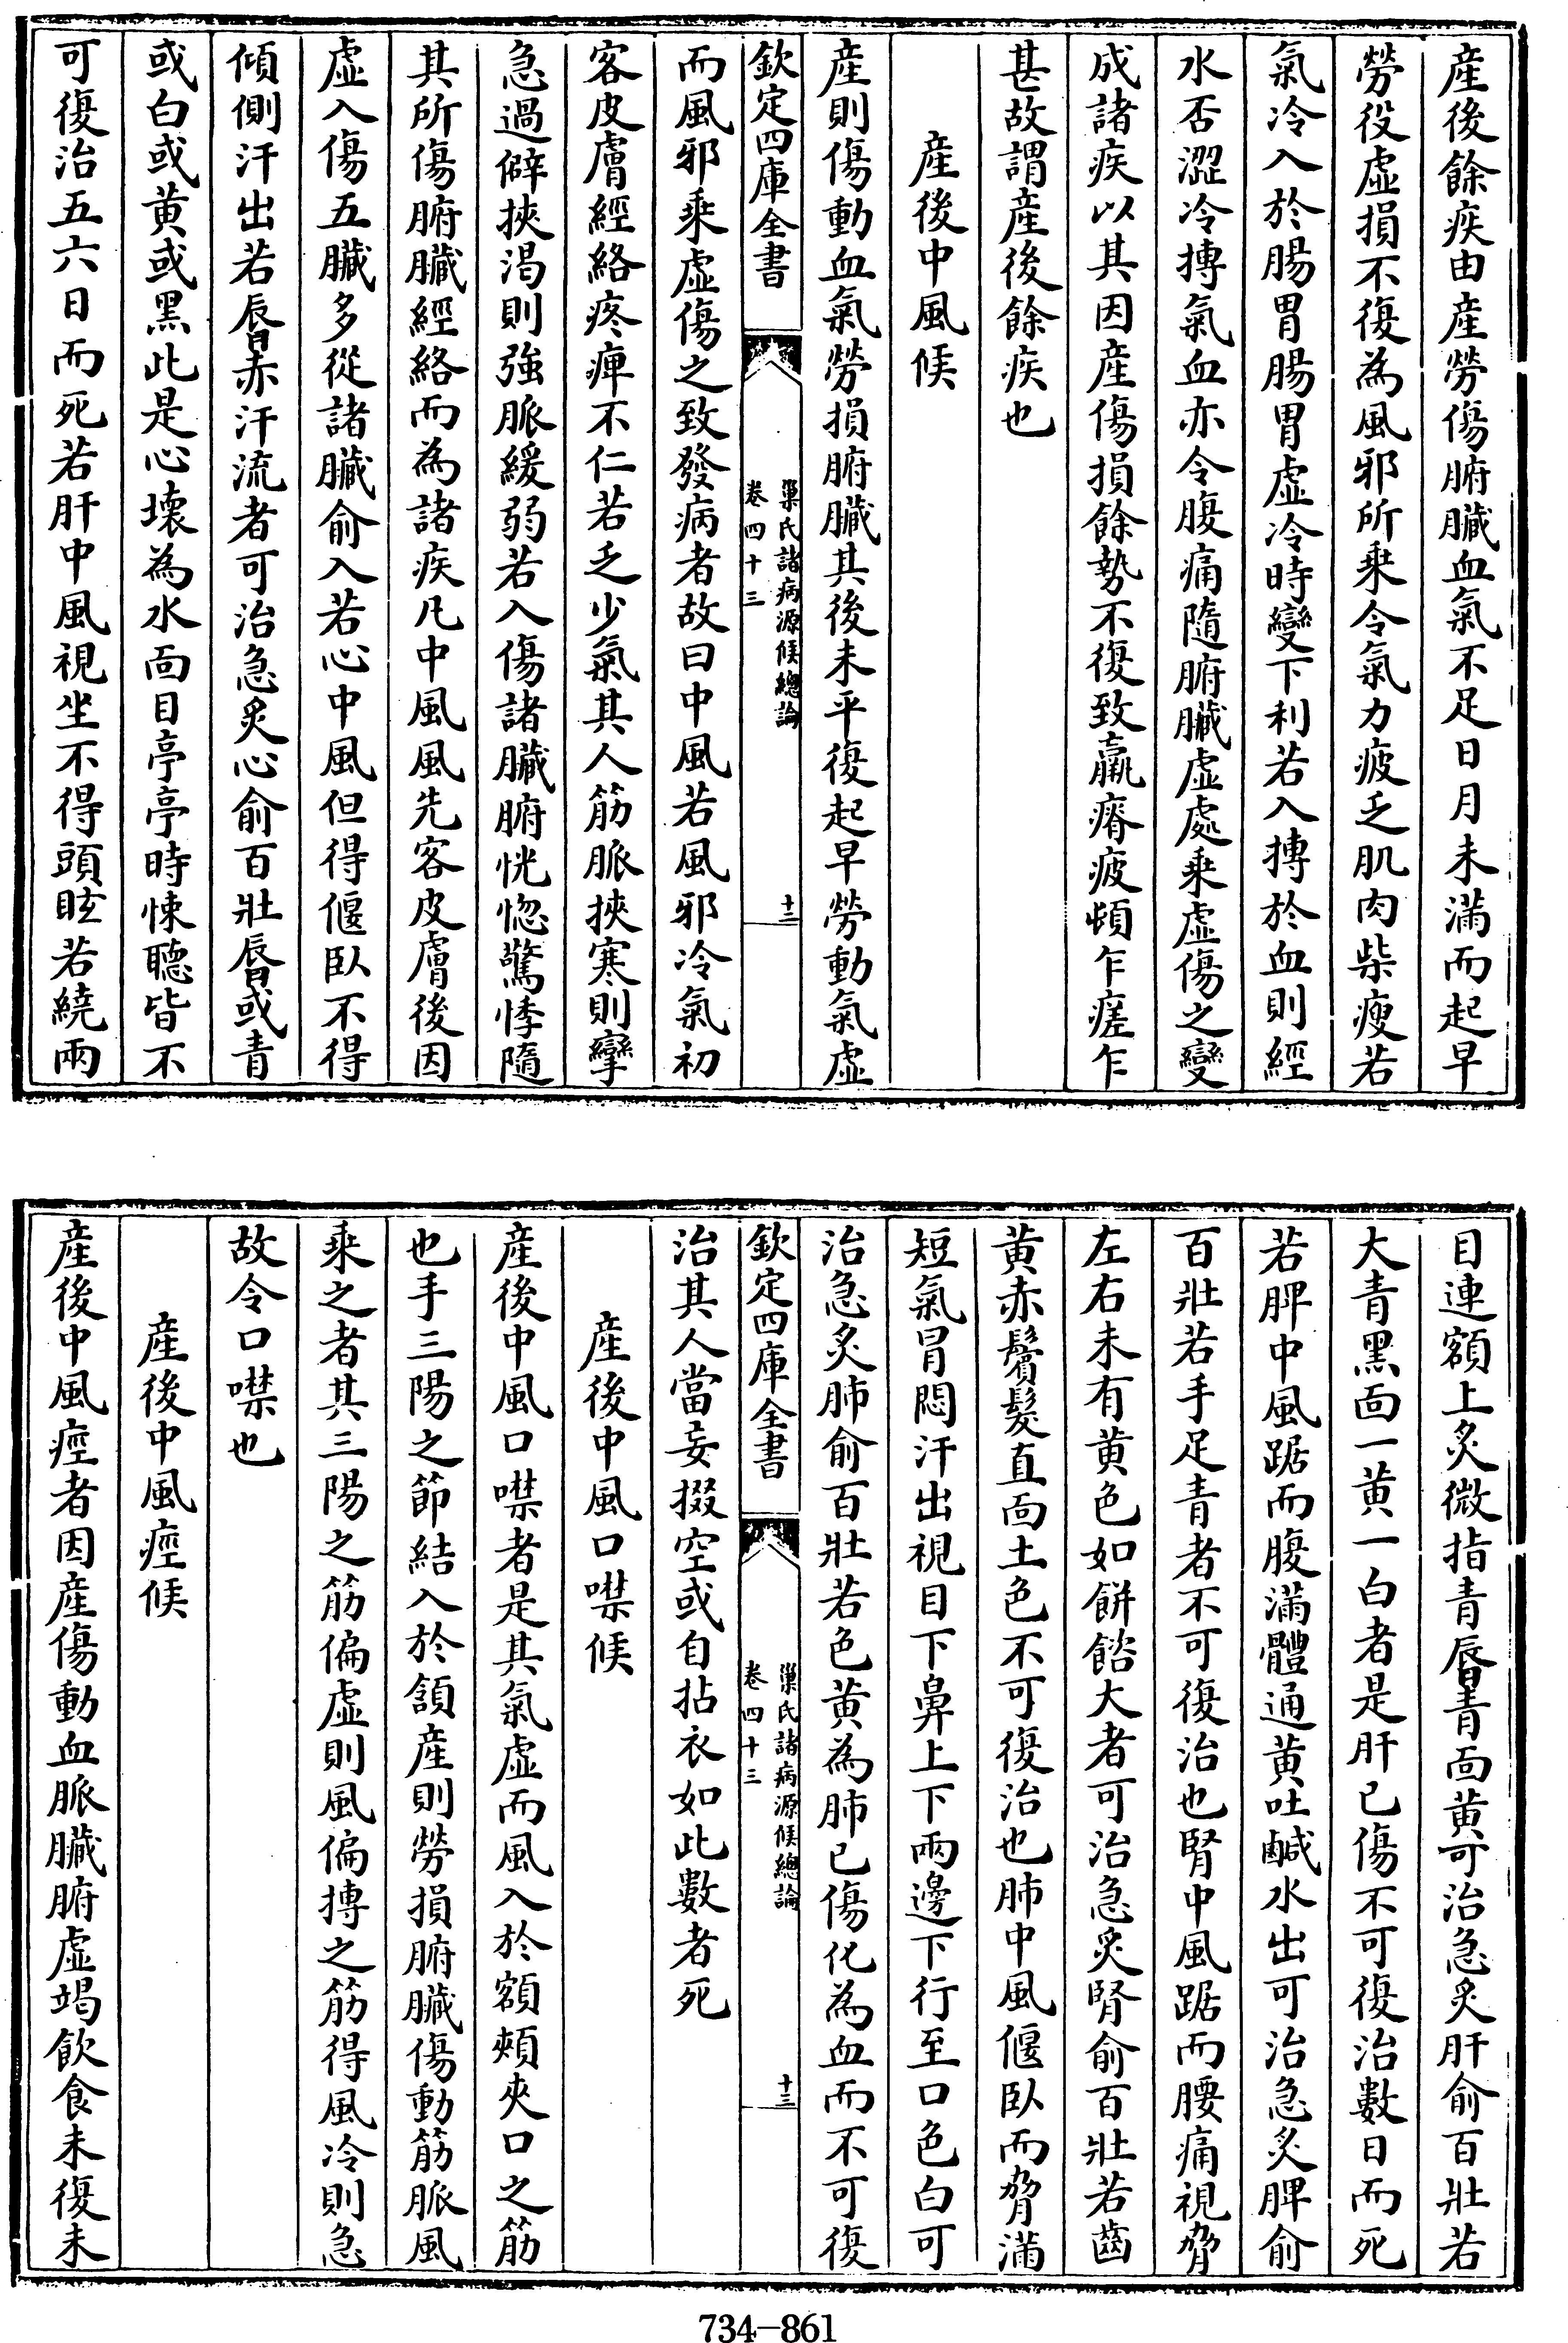 產後餘疾由產勞傷腑臟血氣不足日月未滿而起早
勞役虛損不復為風邪所乗令氣力疲乏肌肉柴瘦若
氣冷入於腸胃腸胃虛冷時變下利若入搏於血則經
水否澀冷搏氣血亦令腹痛隨腑臟虛處乗虛傷之變
成諸疾以其因產傷損餘勢不復致羸瘠疲頓乍瘥乍
甚故謂產後餘疾也
產後中風候
產則傷動血氣勞損腑臟其後未平復起早勞動氣虛
欽定四庫全書
巢氏諸病源候總論
卷四十三
十二
而風邪乗虛傷之致發病者故曰中風若風邪冷氣初
客皮膚經絡疼痺不仁若乏少氣其人筋脈挾寒則攣
急過僻挾濕則強脈緩弱若入傷諸臟腑恍惚驚悸隨
其所傷腑臟經絡而為諸疾凡中風風先客皮膚後因
虛入傷五臟多從諸臟俞入若心中風但得偃臥不得
傾側汗出若唇赤汗流者可治急炙心俞百壯唇或青
或白或黃或黑此是心壞為水面目亭亭時悚聽皆不
可復治五六日而死若肝中風視坐不得頭眩若繞兩
目連額上炙微指青唇青面黃可治急炙肝俞百壯若
大青黑面一黃一白者是肝已傷不可復治數日而死
若脾中風踞而腹滿體通黃吐鹹水出可治急炙脾俞
百壯若手足青者不可復治也腎中風踞而腰痛視脅
左右未有黃色如餅餡大者可治急炙腎俞百壯若齒
黃赤鬢髮直面土色不可復治也肺中風偃臥而脅滿
短氣冒悶汗出視目下鼻上下兩邊下行至口色白可
治急炙肺俞百壯若色黃為肺已傷化為血而不可復
欽定四庫全書
巢氏諸病源候總論
卷四十三
十三
治其人當妄掇空或自拈衣如此數者死
產後中風口噤候
產後中風口噤者是其氣虛而風入於額頰夾口之筋
也手三陽之節結入於頷產則勞損腑臟傷動筋脈風
乗之者其三陽之筋偏虛則風偏搏之筋得風冷則急
故令口噤也
產後中風痙候
產後中風痙者因產傷動血脈臟腑虛竭飲食未復未
734-861